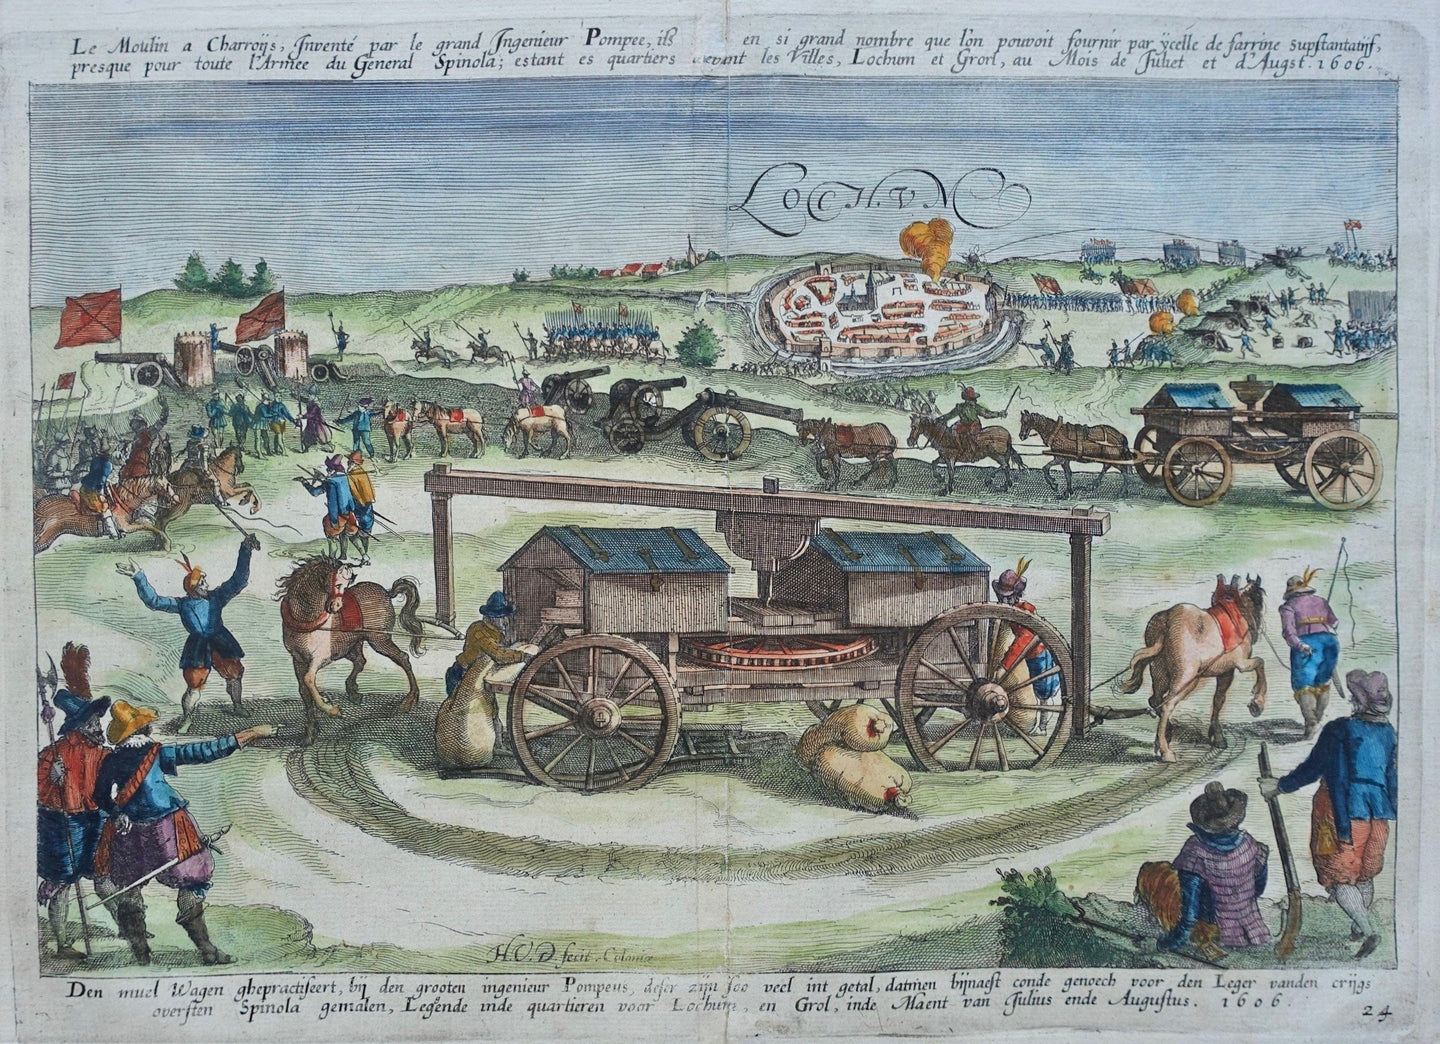 Le Moulin a Charroÿs, Inventé par le grand Ingenieur Pompee, ils en si grand nombre que l'on pouvoit fournir par ÿcelle de farrine supstantatijf,
presque pour toute l'Armee du General Spinola; estant es quartiers devant les Villes, Lochum et Grorl, au Mois de Juliet et d'Augst. 1606.
LOCHVM
H.V.D fecit Coloniæ
Den muel Wagen ghepractiseert, bij den grooten ingenieur Pompeus, deser zijn soo veel int getal, datmen bijnaest conde genoech voor den Leger vanden crijgs
oversten Spinola gemalen, Legende inde quartieren voor Lochum, en Grol, inde Maent van Julius ende Augustus. 1606.
24